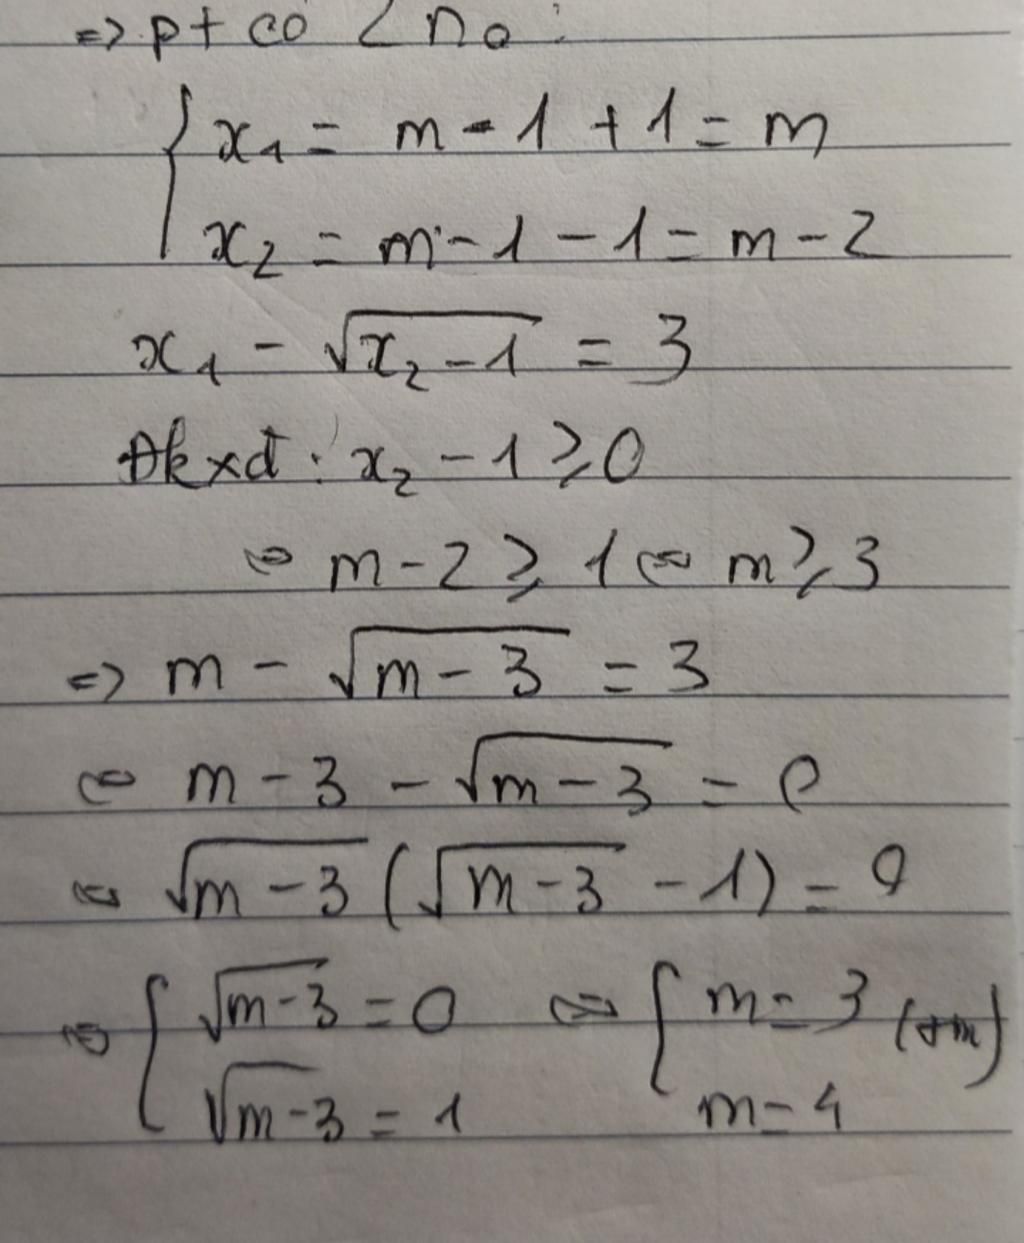 => pt có 2 no:
{ x₁ = m - 1 + 1 = m
x₂ = m - 1 - 1 = m - 2
x₁ - √(x₂ - 1) = 3
Đkxđ: x₂ - 1 ≥ 0
⇔ m - 2 ≥ 1 ⇔ m ≥ 3
=> m - √(m - 3) = 3
⇔ m - 3 - √(m - 3) = 0
⇔ √(m - 3) (√(m - 3) - 1) = 0
⇔ [ √(m - 3) = 0 ⇔ [ m = 3 (tm)
√(m - 3) = 1 m = 4